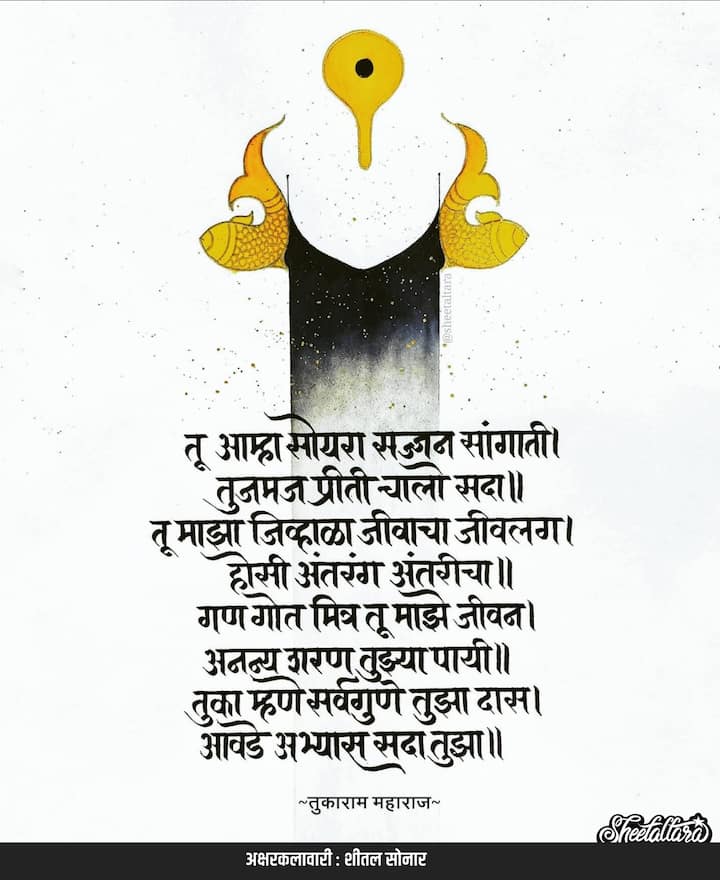 @sheetaltara
तू आम्हा सोयरा सज्जन सांगाती।
तुजमज प्रीती चालो सदा॥
तू माझा जिव्हाळा जीवाचा जीवलग।
होसी अंतरंग अंतरीचा॥
गण गोत मित्र तू माझे जीवन।
अनन्य शरण तुझ्या पायी॥
तुका म्हणे सर्वगुणे तुझा दास।
आवडे अभ्यास सदा तुझा॥
~तुकाराम महाराज~
Sheetaltara
अक्षरकलावारी : शीतल सोनार